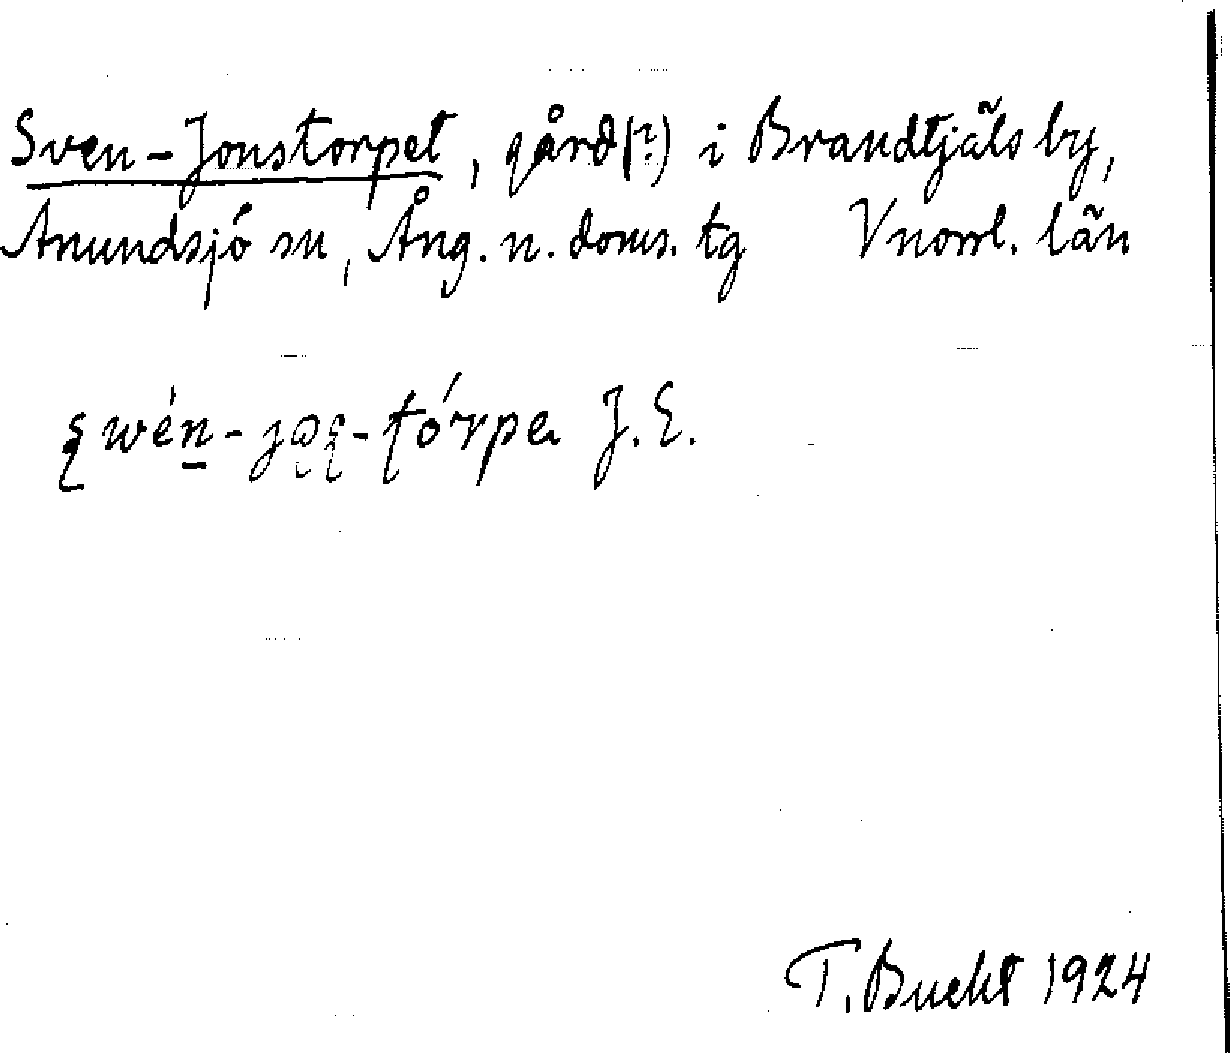 Sven-Jonstorpet, gård(?) i Brandtjäls by,
Anundsjö sn, Ång. n. doms. tg Vnorrl. län
J. E.
T. Bucht 1924